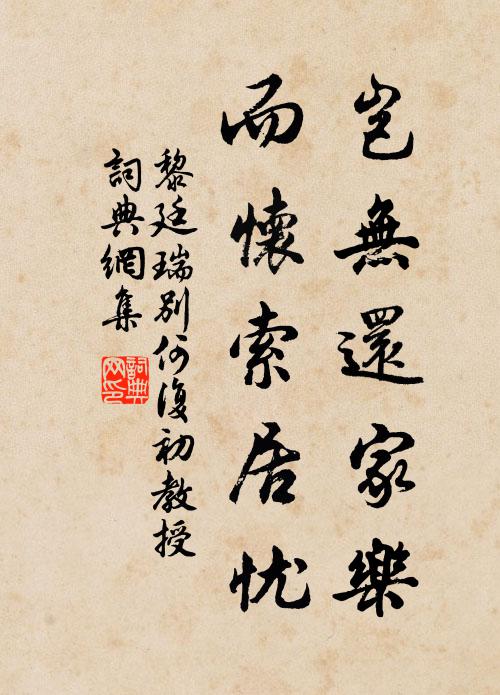 豈無還家樂
而懷索居忧
黎廷瑞別何復初教授
詞典網集
詞典
网印